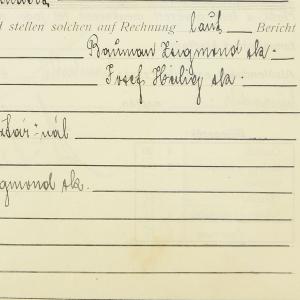 d stellen solchen auf Rechnung laut Bericht
Bauman Zsigmond sk.
Josef Heilig sk.
tár: nál
gmond sk.